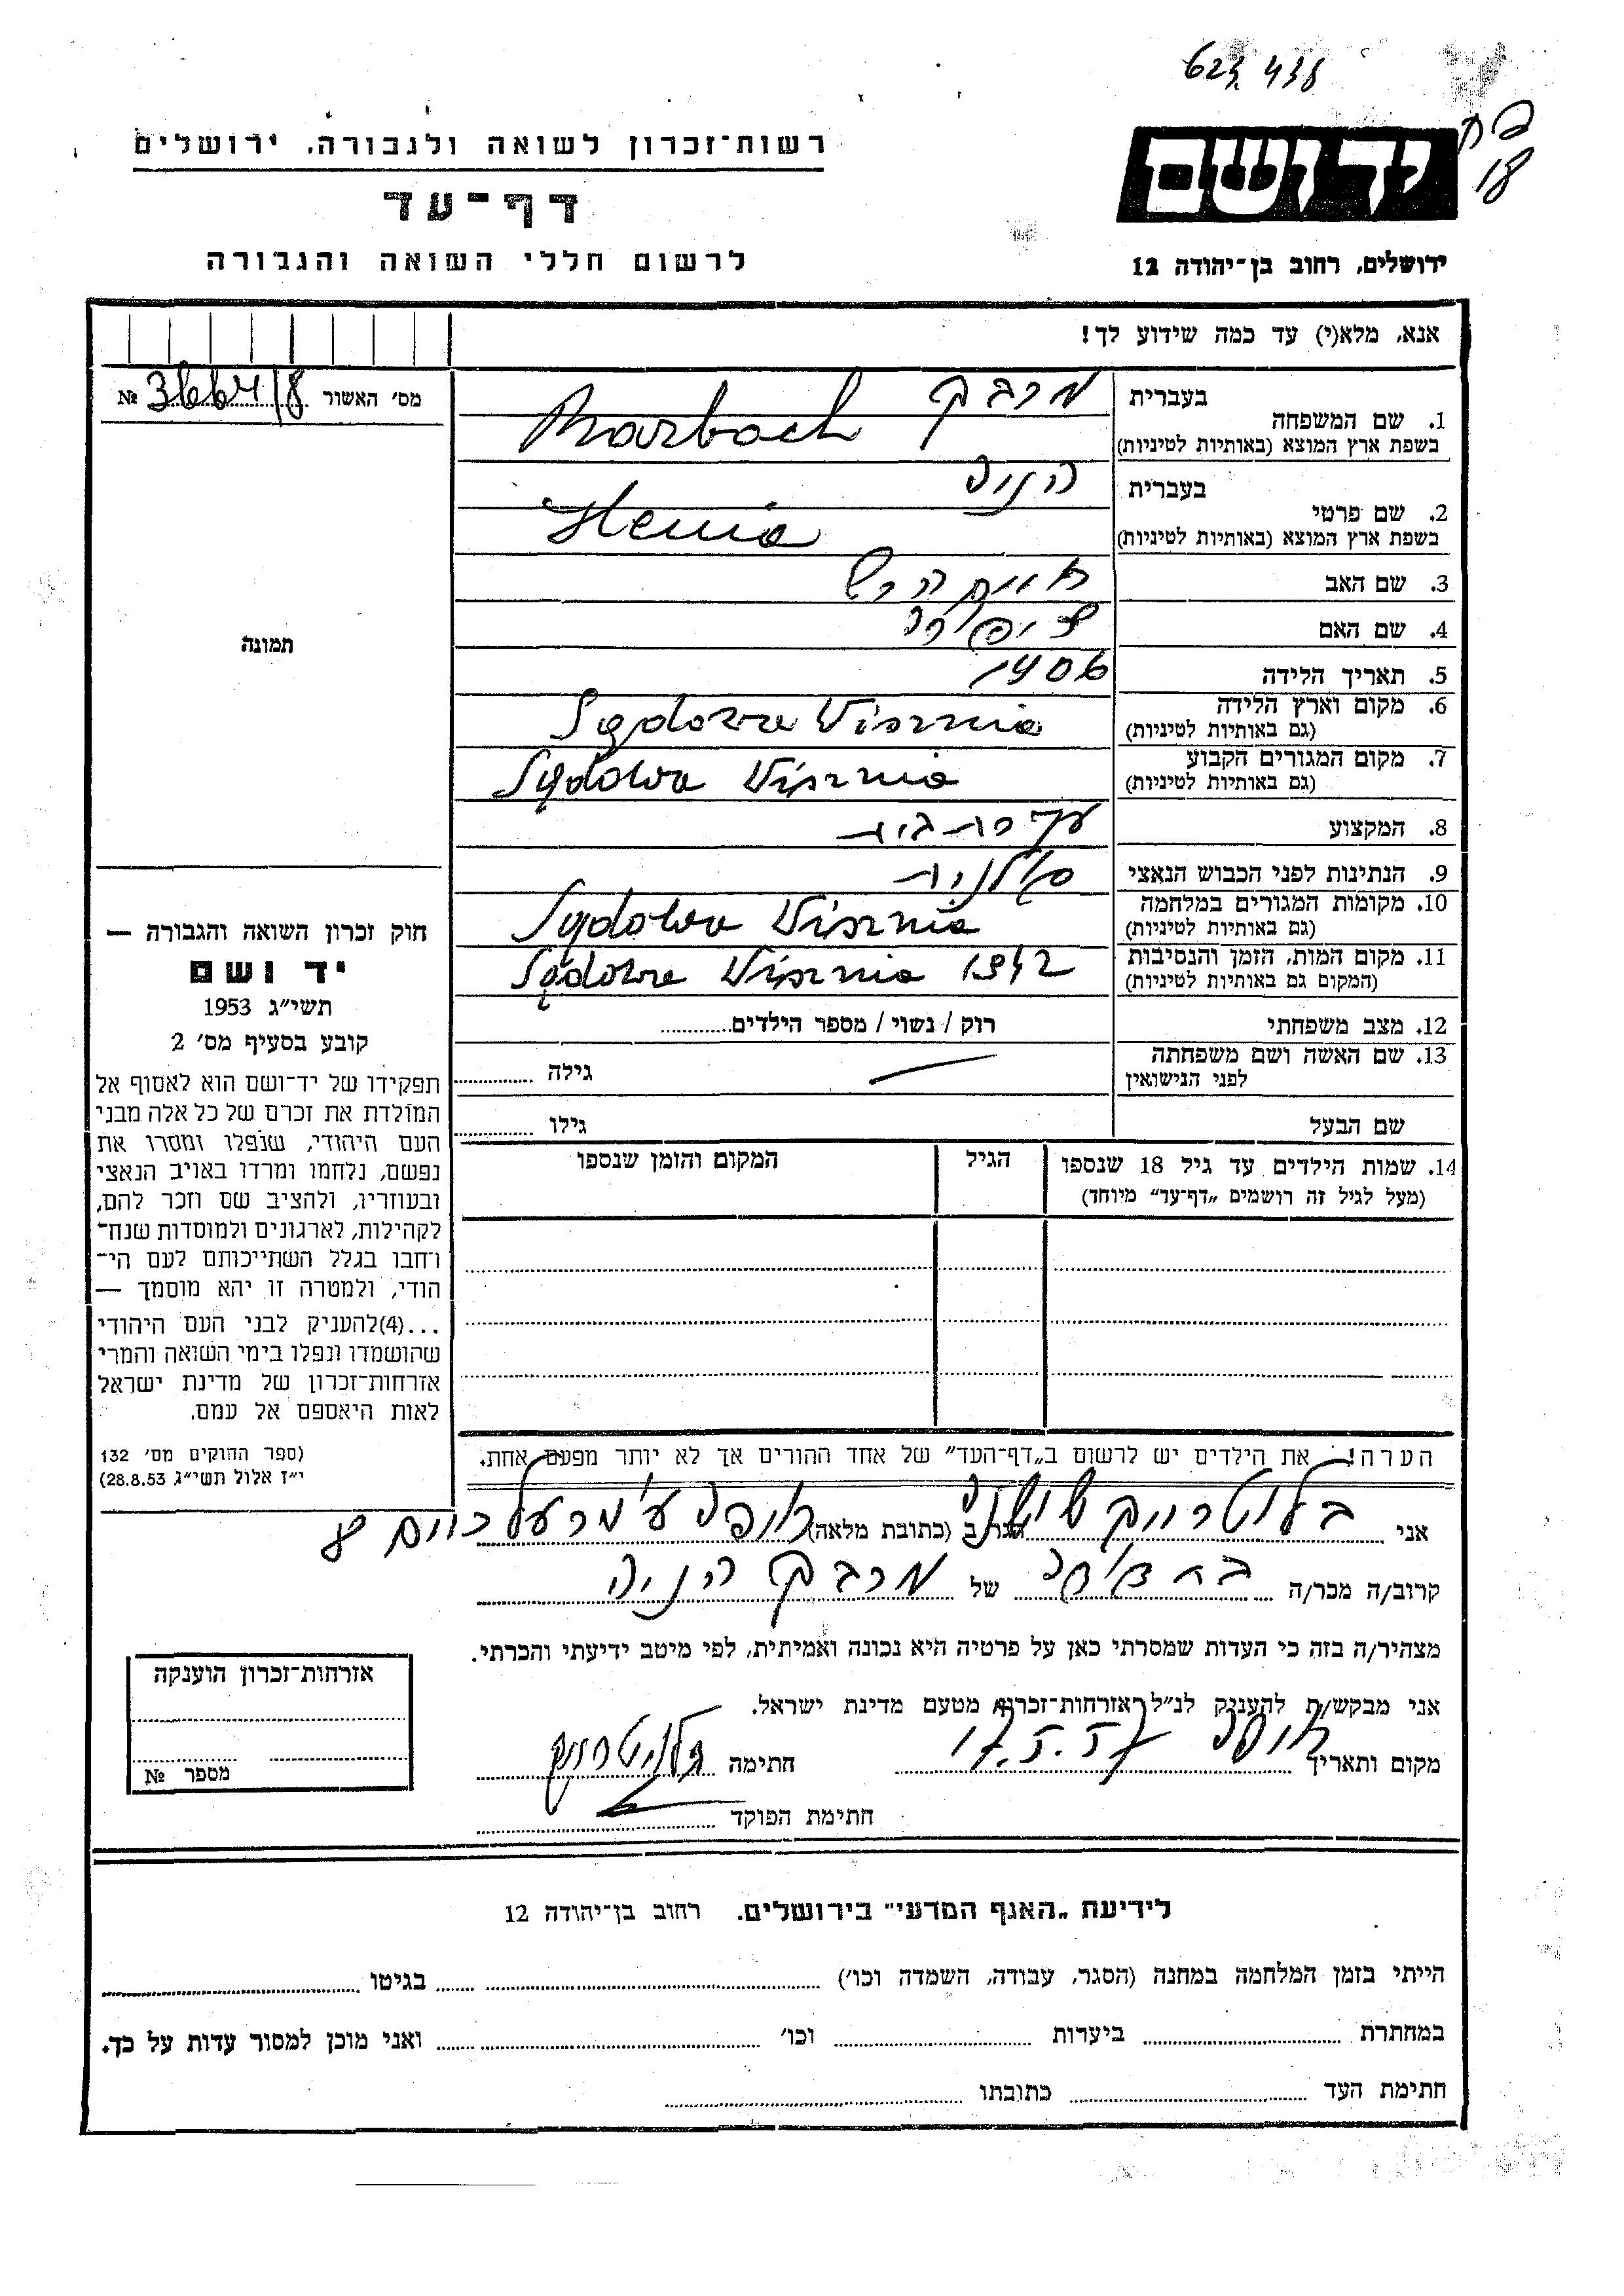 623 438
רשות-זכרון לשואה ולגבורה, ירושלים
יד ושם
18
דף-עד
לרשום חללי השואה והגבורה
ירושלים, רחוב בן-יהודה 12
אנא, מלא(י) עד כמה שידוע לך!
מס׳ האשור 3664/8 №
1. שם המשפחה
בעברית מרבך
בשפת ארץ המוצא (באותיות לטיניות) Marbach
2. שם פרטי
בעברית הניה
בשפת ארץ המוצא (באותיות לטיניות) Henia
3. שם האב חיים הרש
4. שם האם ציפורה
5. תאריך הלידה 1906
6. מקום וארץ הלידה Sądowa Visznia
(גם באותיות לטיניות)
7. מקום המגורים הקבוע Sądowa Visznia
(גם באותיות לטיניות)
8. המקצוע
9. הנתינות לפני הכבוש הנאצי פולנית
10. מקומות המגורים במלחמה Sądowa Visznia
(גם באותיות לטיניות)
11. מקום המות, הזמן והנסיבות Sądowa Visznia 1942
(המקום גם באותיות לטיניות)
12. מצב משפחתי רוק / נשוי / מספר הילדים
13. שם האשה ושם משפחתה גילה
לפני הנישואין
שם הבעל גילו
14. שמות הילדים עד גיל 18 שנספו הגיל המקום והזמן שנספו
(מעל לגיל זה רושמים „דף-עד" מיוחד)
הערה! את הילדים יש לרשום ב„דף-העד" של אחד ההורים אך לא יותר מפעם אחת.
תמונה
חוק זכרון השואה והגבורה —
יד ושם
תשי״ג 1953
קובע בסעיף מס׳ 2
תפקידו של יד-ושם הוא לאסוף אל
המולדת את זכרם של כל אלה מבני
העם היהודי, שנפלו ומסרו את
נפשם, נלחמו ומרדו באויב הנאצי
ובעוזריו, ולהציב שם וזכר להם,
לקהילות, לארגונים ולמוסדות שנח-
רבו בגלל השתייכותם לעם הי-
הודי, ולמטרה זו יהא מוסמך —
...(4)להעניק לבני העם היהודי
שהושמדו ונפלו בימי השואה והמרי
אזרחות-זכרון של מדינת ישראל
לאות היאספם אל עמם.
(ספר החוקים מס׳ 132
י״ז אלול תשי״ג 28.8.53)
אני הגר ב (כתובת מלאה) חיפה
קרוב/ה מכר/ה של מרבך הניה
מצהיר/ה בזה כי העדות שמסרתי כאן על פרטיה היא נכונה ואמיתית, לפי מיטב ידיעתי והכרתי.
אני מבקש/ת להעניק לנ״ל אזרחות-זכרון מטעם מדינת ישראל.
מקום ותאריך חיפה 17.5.57 חתימה
חתימת הפוקד
אזרחות-זכרון הוענקה
מספר №
לידיעת „האגף המדעי" בירושלים, רחוב בן-יהודה 12
הייתי בזמן המלחמה במחנה (הסגר, עבודה, השמדה וכו׳) בגיטו
במחתרת ביערות וכו׳ ואני מוכן למסור עדות על כך.
חתימת העד כתובתו